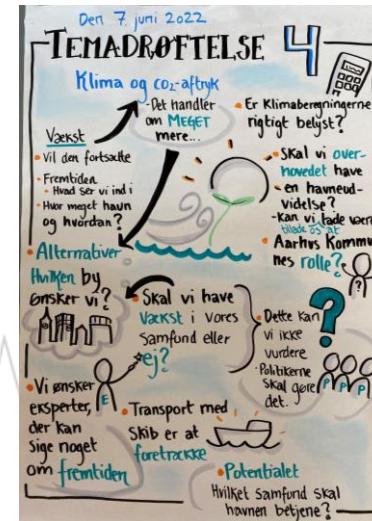 Den 7. juni 2022
TEMADRØFTELSE 4
Klima og CO2-aftryk
-Det handler
om MEGET
mere...
Vækst
• Vil den fortsætte
• Fremtiden
• Hvad ser vi ind i
• Hvor meget havn
og hvordan?
• Alternativer
Hvilken by
ønsker vi?
• Er Klimaberegningerne
rigtigt belyst?
• Skal vi over-
hovedet have
- en havneud-
videlse?
-kan vi lade være
tillade os at
• Aarhus Kommu
nes rolle?
?
• Skal vi have
Vækst i vores
samfund eller
ej?
• Dette kan
vi ikke
vurdere
• Politikerne
skal gøre
det.
?
P P P
• Vi ønsker
eksperter,
der kan
sige noget
om fremtiden
E
• Transport med
Skib er at
foretrække
• Potentialet
Hvilket samfund skal
havnen betjene?